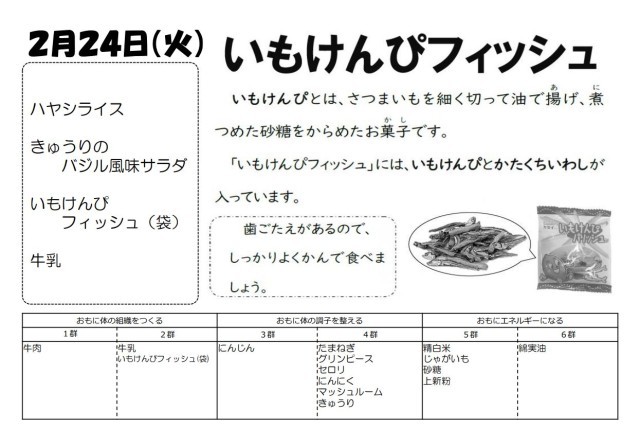 2月24日(火)
いもけんぴフィッシュ
ハヤシライス
きゅうりの
バジル風味サラダ
いもけんぴ
フィッシュ(袋)
牛乳
いもけんぴとは、さつまいもを細く切って油で揚げ、煮
つめた砂糖をからめたお菓子です。
「いもけんぴフィッシュ」には、いもけんぴとかたくちいわしが
入っています。
歯ごたえがあるので、
しっかりよくかんで食べま
しょう。
いもけんぴ
フィッシュ
おもに体の組織をつくる おもに体の調子を整える おもにエネルギーになる
1群 2群 3群 4群 5群 6群
牛肉 牛乳 にんじん たまねぎ 精白米 綿実油
いもけんぴフィッシュ(袋) グリンピース じゃがいも
セロリ 砂糖
にんにく 上新粉
マッシュルーム
きゅうり